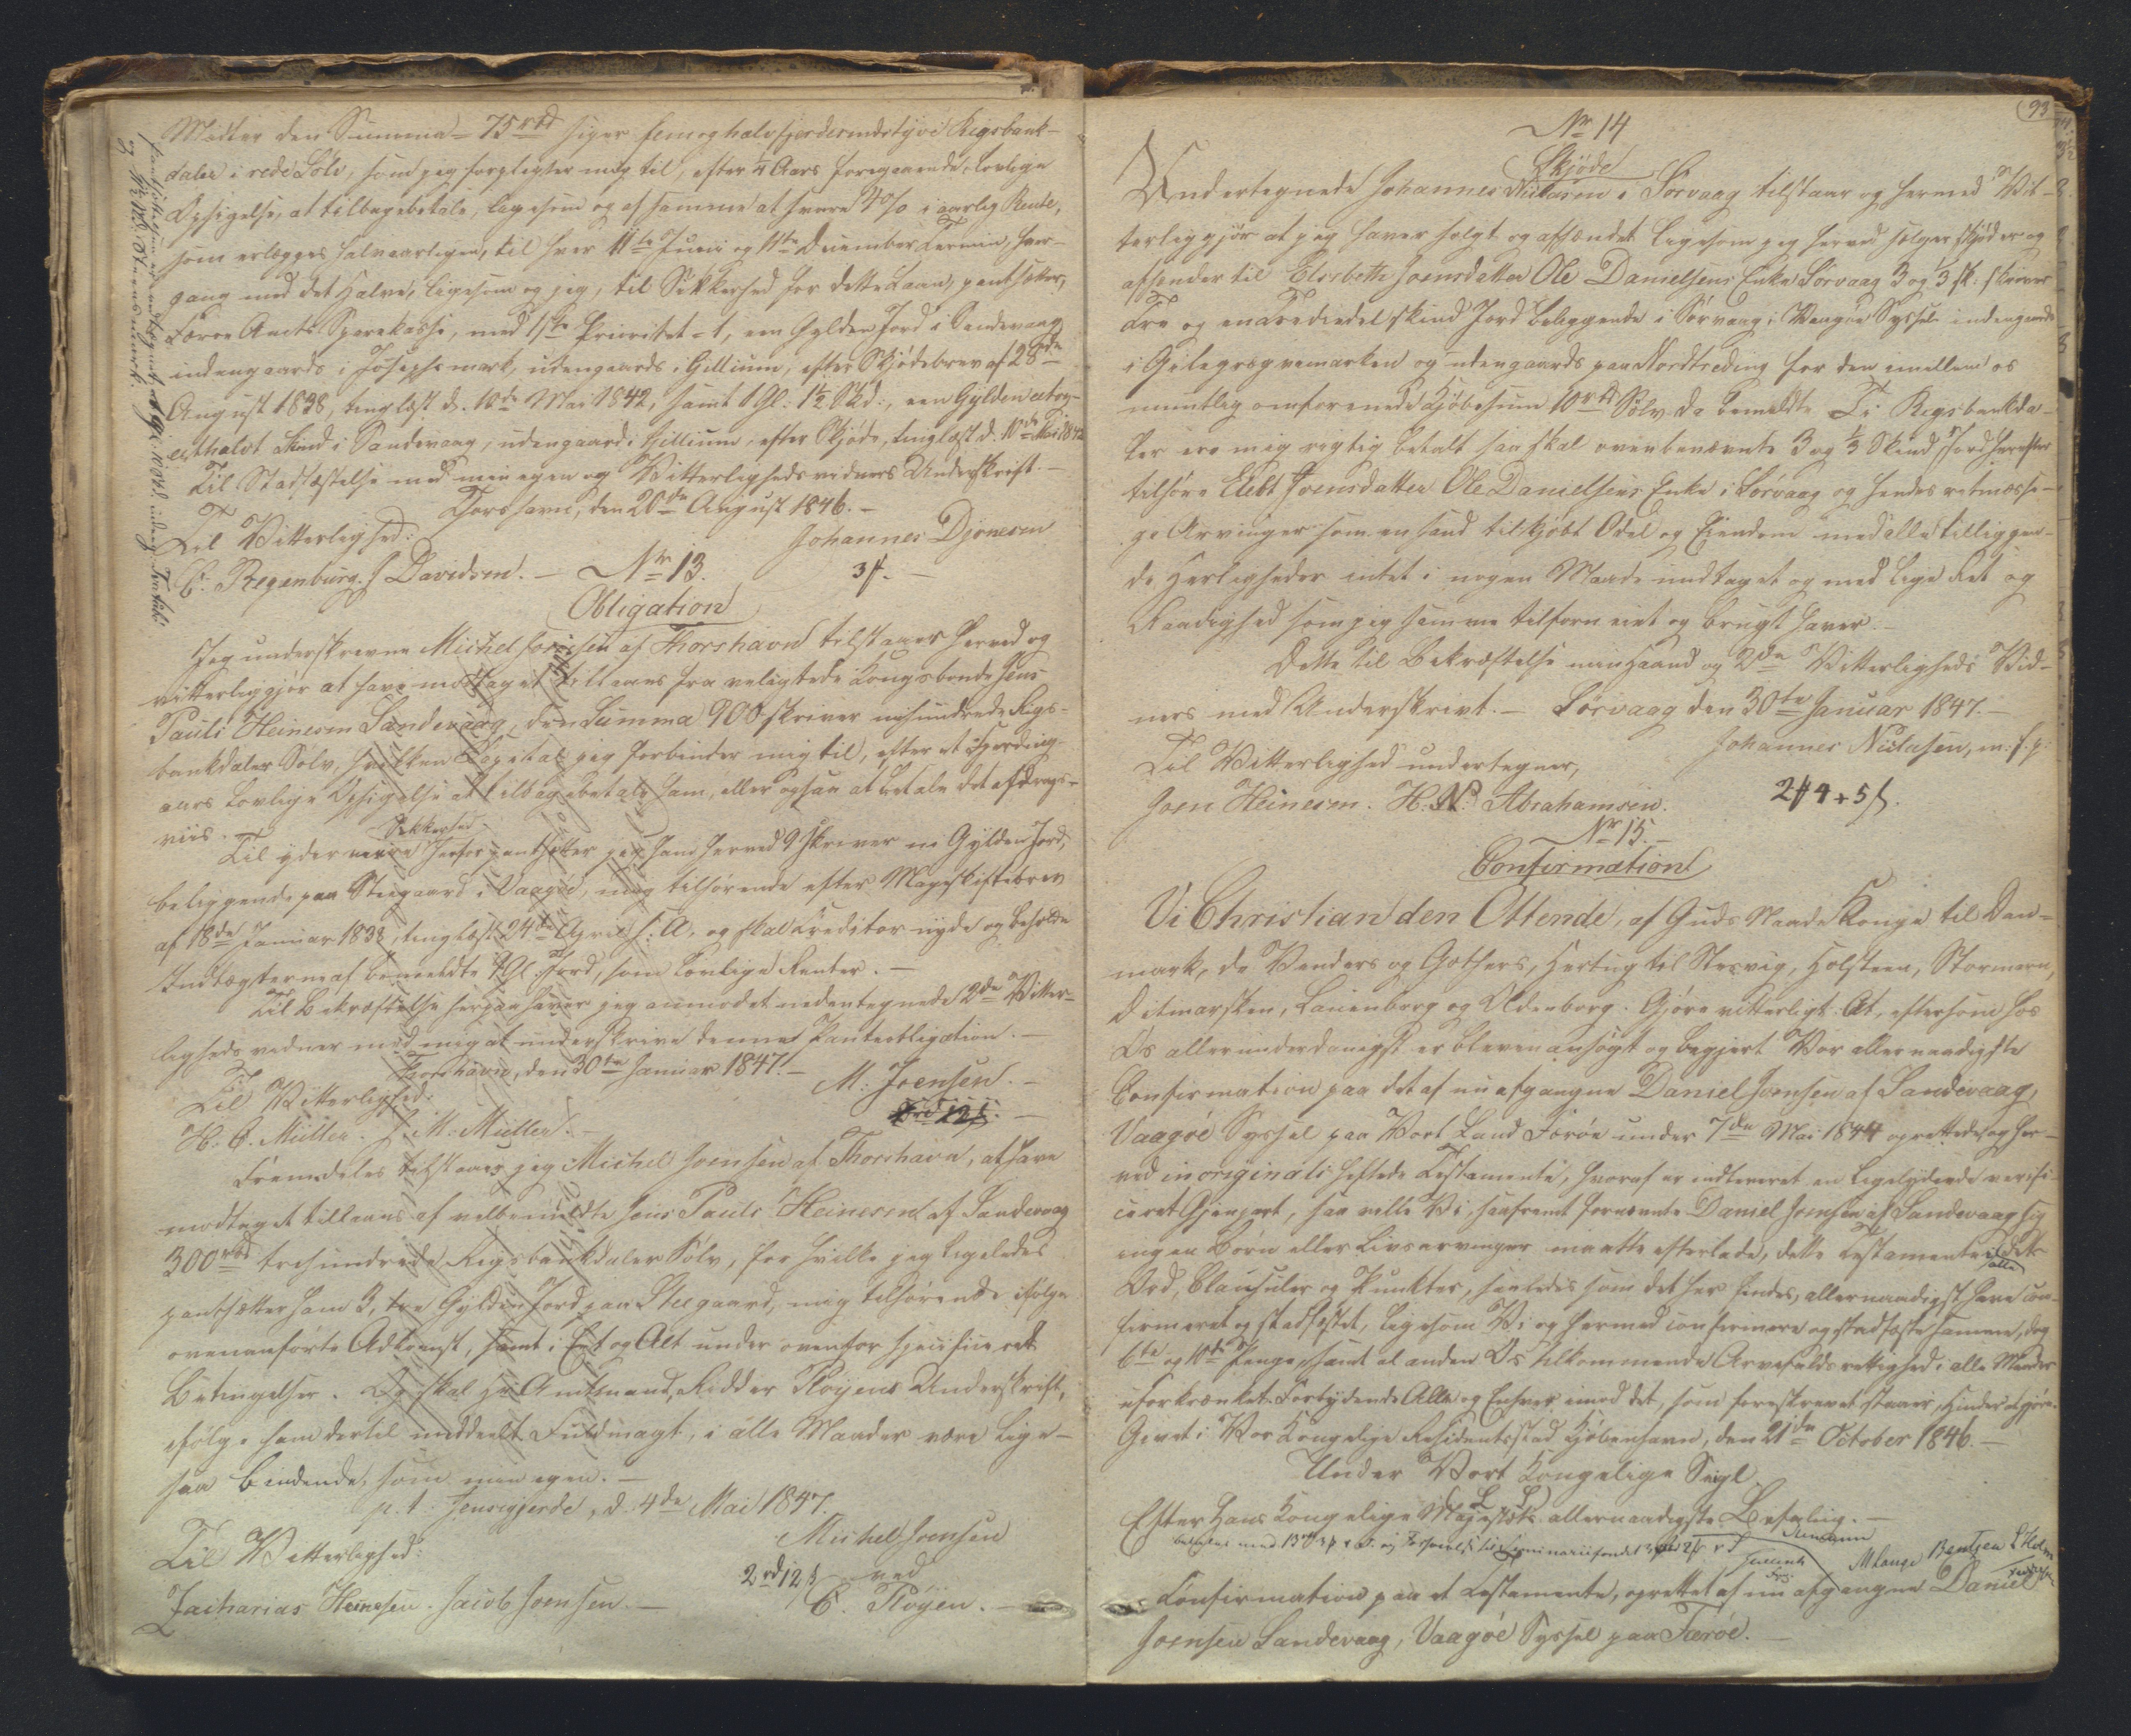 Midler den Summa = 75 rbd siger fem og halvfjerdsindstyve Rigsbank-
daler i rede Sølv, som jeg forpligter mig til, efter ¼ Aars foregaaende, lovlige
Opsigelse, at tilbagebetale, ligesom og af samme at svare 4 % i aarlig Rente,
som erlægges halvaarligen, til hver 11te Junii og 11te December Termin, hver-
gang med det Halve, ligesom og jeg, til Sikkerhed for dette Laan, pantsætter,
Færøe Amts Sparekasse, med 1ste Prioritet = 1, een Gylden Jord i Sandevaag
indengaards i Josephsmark, udengaards i Gillium, efter Skjødebrev af 28de
August 1838, tinglæst d. 10de Mai 1842, samt 1 Gl: 1½ Skd:, een Gylden et og
et halvt Skind i Sandevaag, udengaards i Gillium, efter Skjøde, tinglæst d. 10de Mai 1842
Til Stadfæstelse med min egen og Vitterligheds vidners Underskrift. -
Thorshavn, den 20de August 1846. -
Til Vitterlighed:
Johannes Djonesen
C. Regenburg. J Davidsen. -
3 f. -
Nr 13.
Obligation
Jeg underskrevne Michel Joensen af Thorshavn tilstaaer herved og
vitterliggjør at have modtaget tillaans fra velagtede Kongsbonde Jens
Pauli Heinesen Sandevaag, den Summa 900 skriver nihundrede Rigs-
bankdaler Sølv, hvilken Capital jeg forbinder mig til, efter et Fjerding-
aars lovlige Opsigelse at tilbagebetale ham, eller ogsaa at betale det afdrags-
viis. -
Til ydermeere Sikkerhed herfor pantsætter jeg ham herved 9 skriver ni Gylden Jord,
beliggende paa Steegaard i Vaagøe, mig tilhørende efter Mageskiftebrev
af 18de Januar 1838, tinglæst 24de April s: A. og skal Creditor nyde og beholde
Indtægterne af bemeeldte 9 Gl. Jord, som lovlige Renter. -
Til Bekræftelse herpaa haver jeg anmodet nedentegnede 2de Vitter-
ligheds vidner med mig at underskrive denne Pantobligation. -
Thorshavn, den 30te Januar 1847. -
Til Vitterlighed:
M: Joensen. -
H. C. Müller. J. M. Müller. -
Fremdeles tilstaaer jeg Michel Joensen af Thorshavn, at have
modtaget tillaans af velbemeldte Jens Pauli Heinesen af Sandevaag
300 rbd trehundrede Rigsbankdaler Sølv, for hvilke jeg ligeledes
pantsætter ham 3, tre Gylden Jord paa Steegaard, mig tilhørende ifølge
ovenanførte Adkomst, samt i Eet og Alt under ovenfor specificerede
Betingelser. Og skal Hr Amtmand, Ridder Pløyens Underskrift,
ifølge ham dertil meddeelt Fuldmagt, i alle Maader være lige-
saa bindende, som min egen. -
p. t. Jensigjerde, d. 4de Mai 1847.
Til Vitterlighed:
Michel Joensen
2 rd 12 s ved
Zacharias Heinesen. Jacob Joensen. -
C. Pløyen. -
93
Nr 14
Skjøde
Undertegnede Johannes Niclasen i Sørvaag tilstaar og hermed Vit-
terliggjør at jeg haver solgt og afhændet ligesom jeg herved sælger skjøder og
afhender til Elsebeth Joensdatter Ole Danielsens Enke Sørvaag 3 og ⅓ sk: skriver
Tre og en Trediedel skind Jord beliggende i Sørvaag i Vaagøe Syssel indengaards
i Gilegrøgvemarken og udengaards paa Nordtreding for den imellem os
mundtlig omforenede Kjøbesum 10 rbd Sølv da bemeldte Ti Rigsbankda-
ler ere mig rigtig betalt saa skal ovenbenævnte 3 og ⅓ Skind Jord herefter
tilhøre Elsbt Joensdatter Ole Danielsens Enke i Sørvaag og hendes retmæssi-
ge Arvinger som en sand tilkjøbt Odel og Eiendom med alle tilliggen-
de Herligheder intet i nogen Maade undtaget og med lige Ret og
Raadighed som jeg samme tilforn eiet og brugt haver. -
Dette til Bekræftelse min Haand og 2de Vitterligheds Vid-
ners med Underskrivt. - Sørvaag den 30te Januar 1847. -
Til Vitterlighed undertegner,
Johannes Niclasen, m. f. p.
Joen Heinesen. H. N. Abrahamsen.
Nr 15. -
Confirmation
Vi Christian den Ottende, af Guds Naade Konge til Dan-
mark, de Venders og Gothers, Hertug til Slesvig, Holsteen, Stormarn,
Ditmarsken, Lauenborg og Oldenborg. Gjøre vitterligt: At, eftersom hos
Os allerunderdanigst er bleven ansøgt og begjert Vor allernaadigste
Confirmation paa det af nu afgangne Daniel Joensen af Sandevaag,
Vaagøe Syssel paa Vort Land Færøe under 7de Mai 1844 oprettede, og her-
ved in originali heftede Testamente, hvoraf er indleveret en ligelydende verifi-
ceret Gjenpart, saa ville Vi, saafremt fornævnte Daniel Joensen af Sandevaag sig
ingen Børn eller Livsarvinger maatte efterlade, dette Testamente i alle dets
Ord, Clausuler og Punkter, saaledes som det her findes, allernaadigst have con-
firmeret og stadfæstet, ligesom Vi og hermed confirmere og stadfæste samme, dog
6te og 10de Penge, samt al anden Os tilkommende Arvefaldsrettighed i alle Maader
uforkrænket. Forbydende Alle og Enhver imod det, som foreskrevet staaer, Hinder at gjøre.
Givet i Vor Kongelige Residentsstad Kjøbenhavn, den 21de October 1846. -
Under Vort Kongelige Segl
(L. S.)
Efter Hans Kongelige Majestæts allernaadigste Befaling. -
M Lange Bentzen L Holm
Confirmation paa et Testamente, oprettet af nu afgangne Daniel
Joensen Sandevaag, Vaagøe Syssel paa Færøe. -